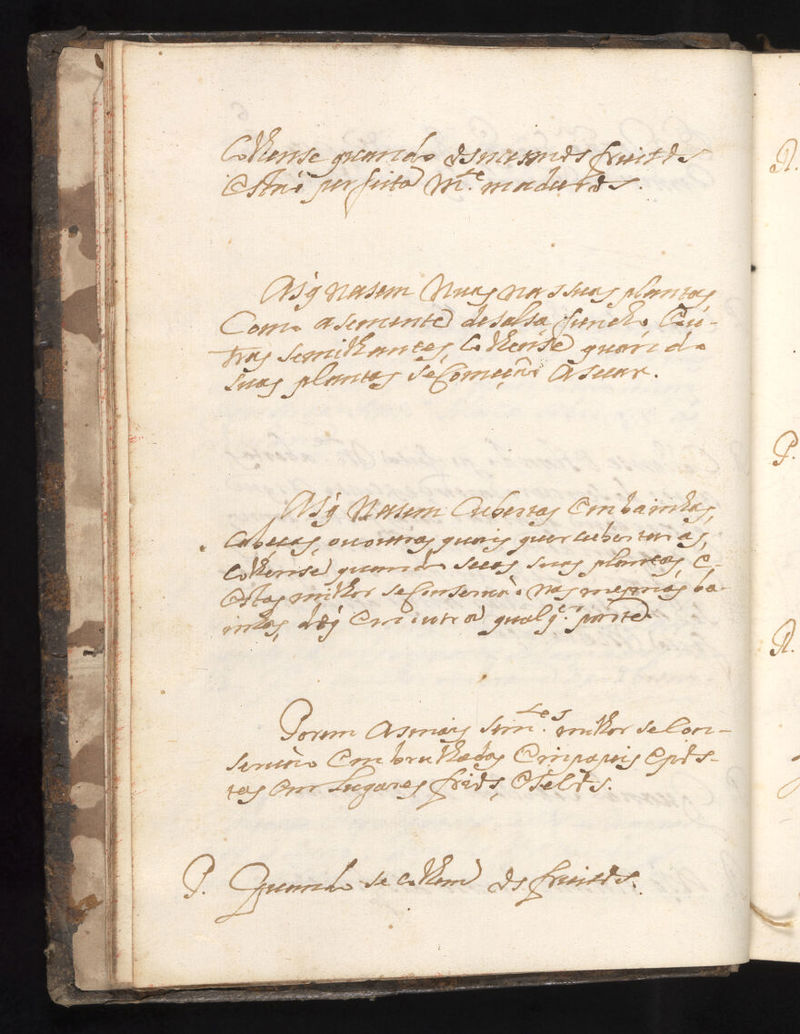 Colhense quando os mesmos fruitos
estaõ perfeita m.te maduros.
As q̃ nasem nuas nas suas plantas,
Como a semente de salsa, funcho, e ou-
tras semilhantes, colhense quando
suas plantas se Comesaõ a secar.
As q̃ nasem Cubertas em bainhas,
Cabesas, ou outras quais quer cuberturas,
colhense quando secas suas plantas, e
estas milhor se Conservaõ nas mesmas ba-
inhas, do q̃ em outra qualq.r parte.
Porem as mais sem.tes milhor se Con-
servaõ embrulhadas em papeis e pos-
tas em lugares frios, e secos.
P. Quando se colhem os fruitos.
P.